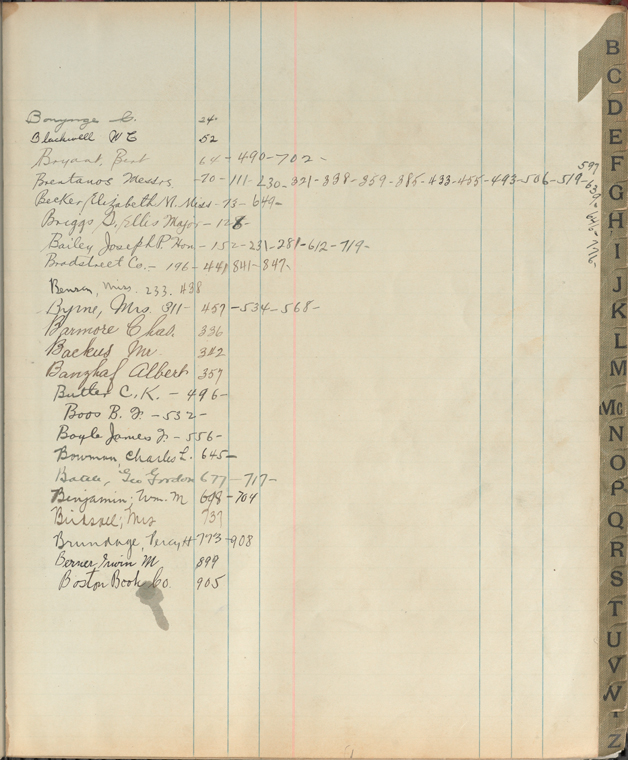 Bonynge C. 24
Blackwell W C 52
Bryant, Bert 64-490-702-
Brentanos Messrs -70-111-230-321-338-359-385-433-455-493-506-519-
597
639-646-776-
Becker, Elizabeth M. Miss-73-649-
Briggs, G. Ellis Major-128-
Bailey Joseph P. Hon-152-231-281-612-719-
Bradstreet Co.-196-441 841-847-
Benson, Miss. 233. 438
Byrne, Mrs. 311-457-534-568-
Barmore Chas. 336
Backus Mr. 342
Banghaf Albert 357
Butler C.K.-496-
Boos B. F-532-
Boyle James J.-556-
Bowman, Charles L. 645-
Geo Gordon 677-717-
Benjamin, Wm. M 698-704
Birdsall, Mrs 737
Brundage, Percy H 773-908
Berner, Irwin M 899
Boston Book Co. 905
B
C
D
E
F
G
H
I
J
K
L
M
Mc
N
O
P
Q
R
S
T
U
V
W
Z